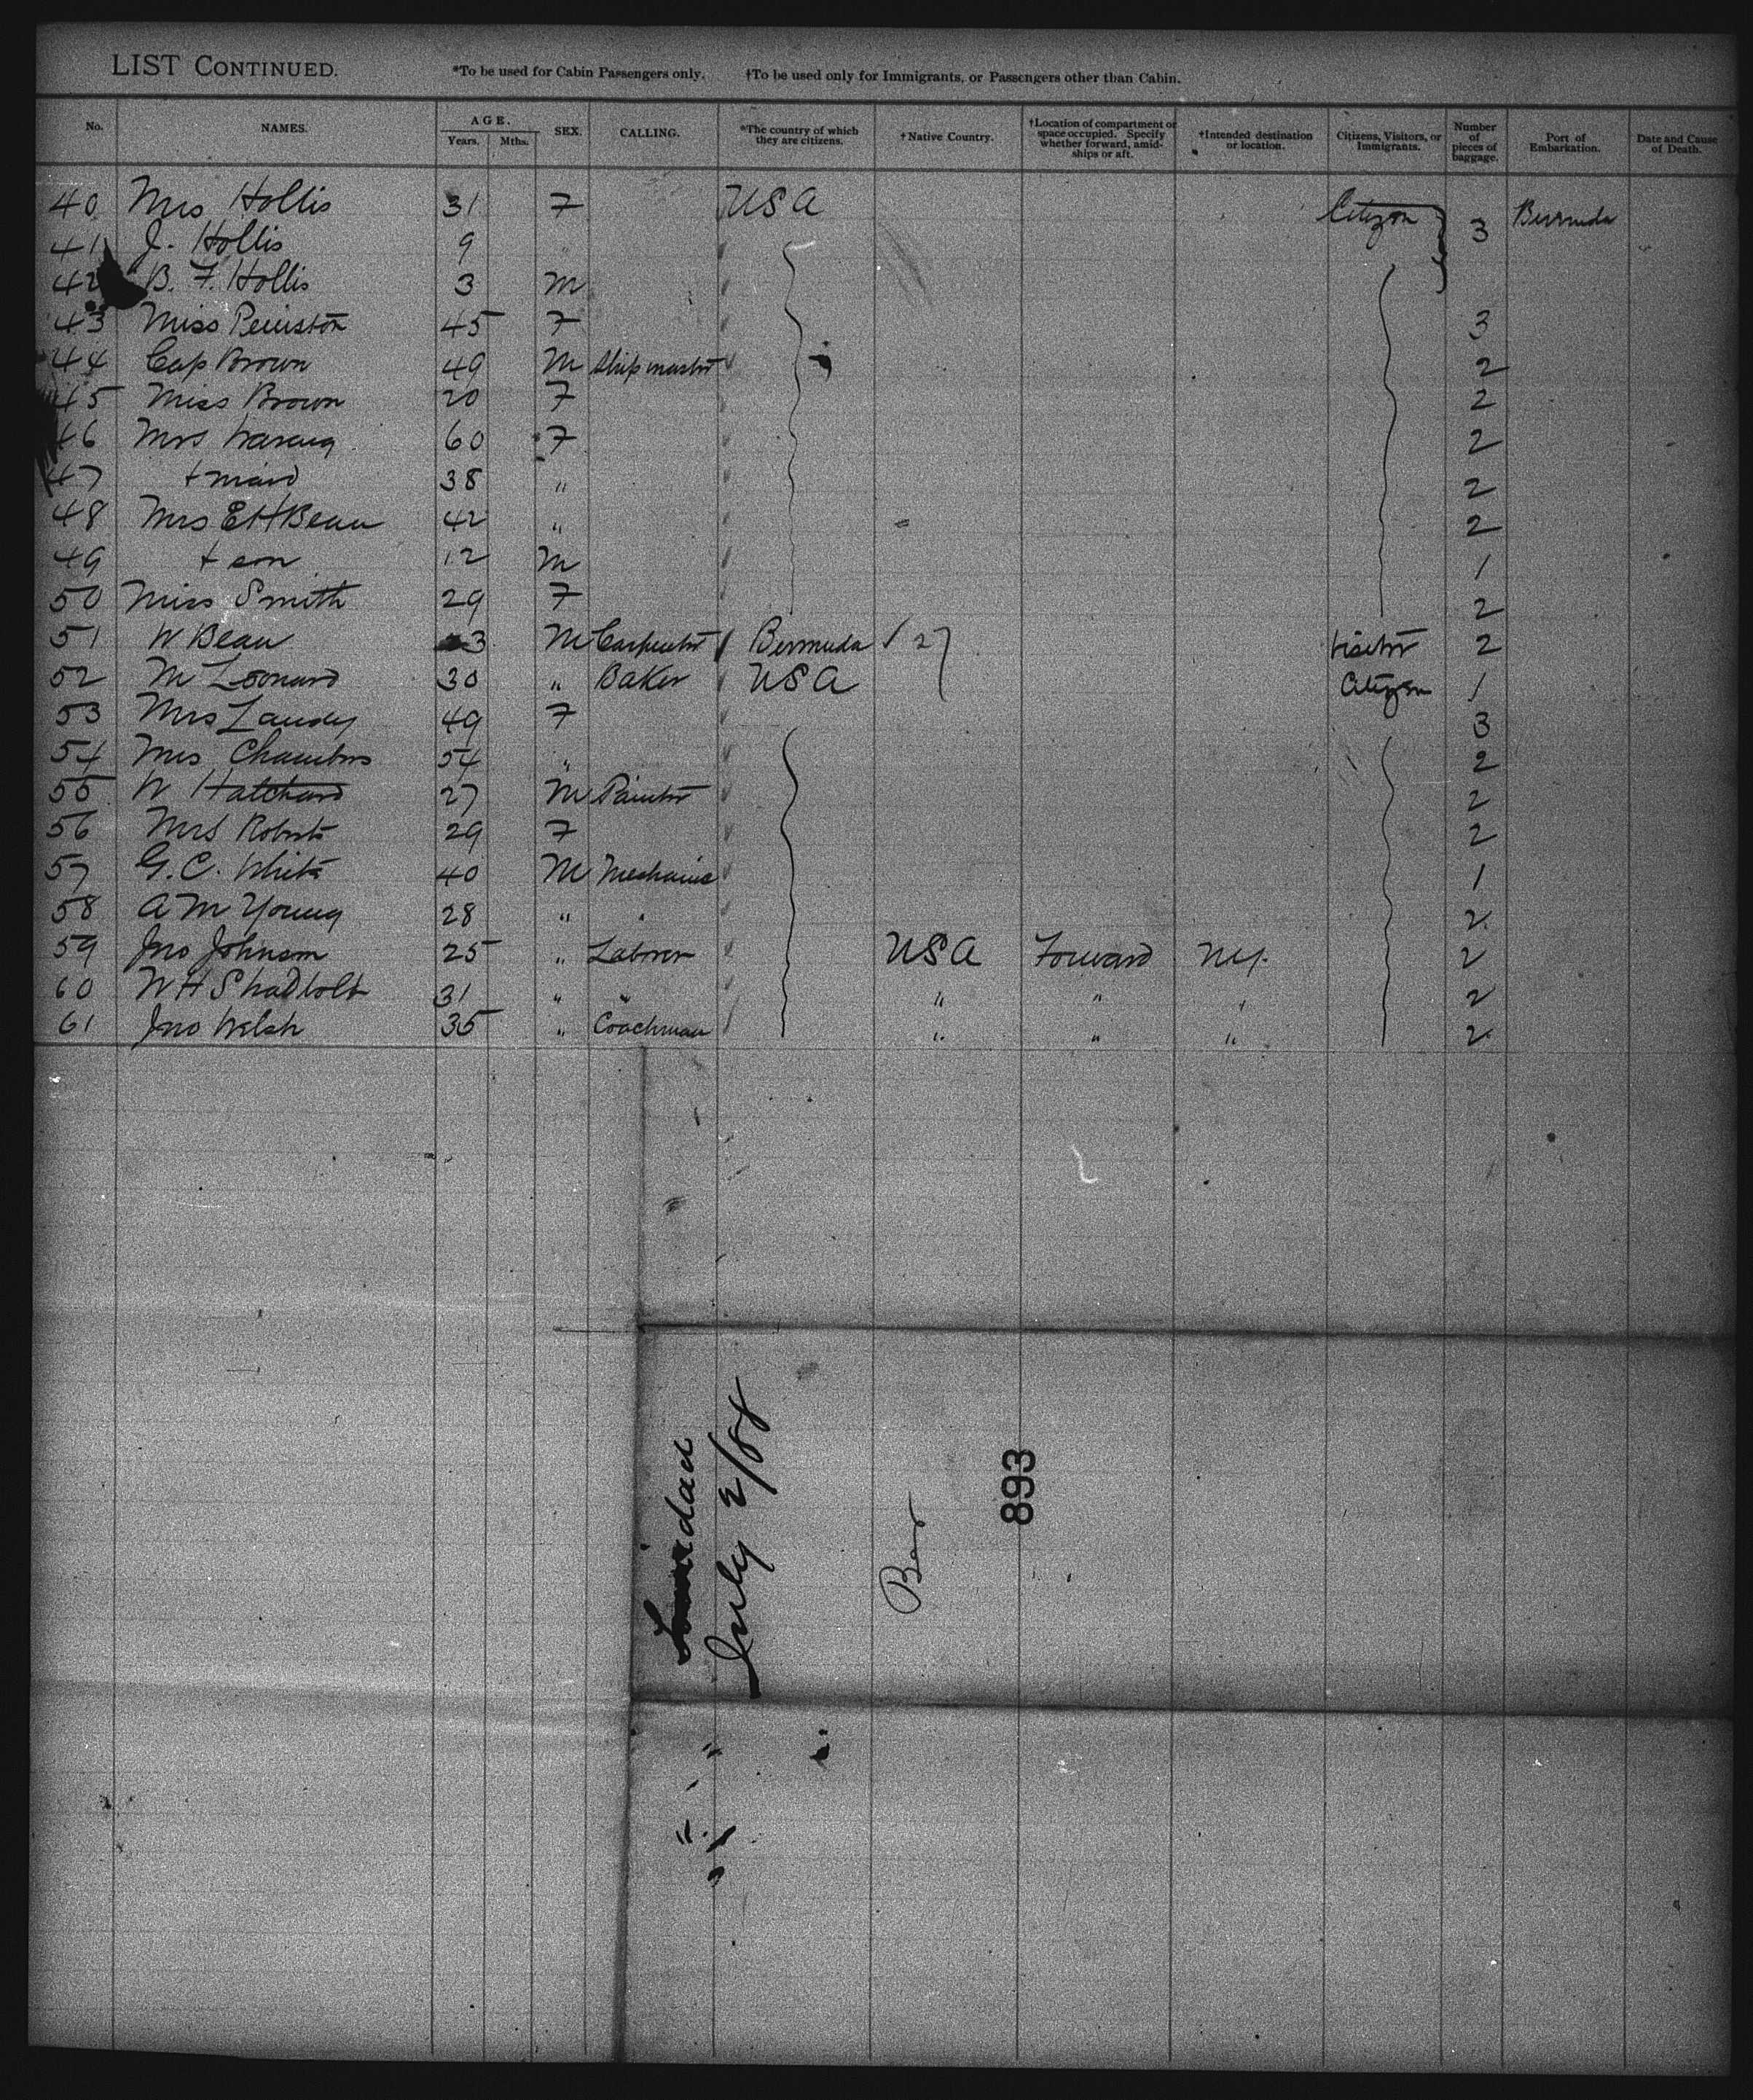 LIST CONTINUED. *To be used for Cabin Passengers only. †To be used only for Immigrants, or Passengers other than Cabin.
No. NAMES. AGE. Years. Mths. SEX. CALLING. *The country of which they are citizens. †Native Country. †Location of compartment or space occupied. Specify whether forward, amidships or aft. †Intended destination or location. Citizens, Visitors, or Immigrants. Number of pieces of baggage. Port of Embarkation. Date and Cause of Death.
40 Mrs Hollis 31 F USA Citizen 3 Bermuda
41 J. Hollis 9 "
42 B. F. Hollis 3 M
43 Miss Peniston 45 F 3
44 Cap Brown 49 M Shipmaster 2
45 Miss Brown 20 F 2
46 Mrs 60 F 2
47 + maid 38 " 2
48 Mrs E H Bean 42 " 2
49 + son 12 M 1
50 Miss Smith 29 F 2
51 W Bean 3 M Carpenter Bermuda 27 Visitor 2
52 M Leonard 30 " Baker USA Citizen 1
53 Mrs Landy 49 F 3
54 Mrs Chambers 54 " 2
55 W Hatchard 27 M Painter 2
56 Mrs Roberts 29 F 2
57 G. C. White 40 M Mechanic 1
58 A M Young 28 " " 2
59 Jno Johnson 25 " Laborer USA Forward NY. 2
60 W H Shadbolt 31 " " " " " 2
61 Jno Welsh 35 " Coachman " " " 2
Trinidad
July 2/88
893